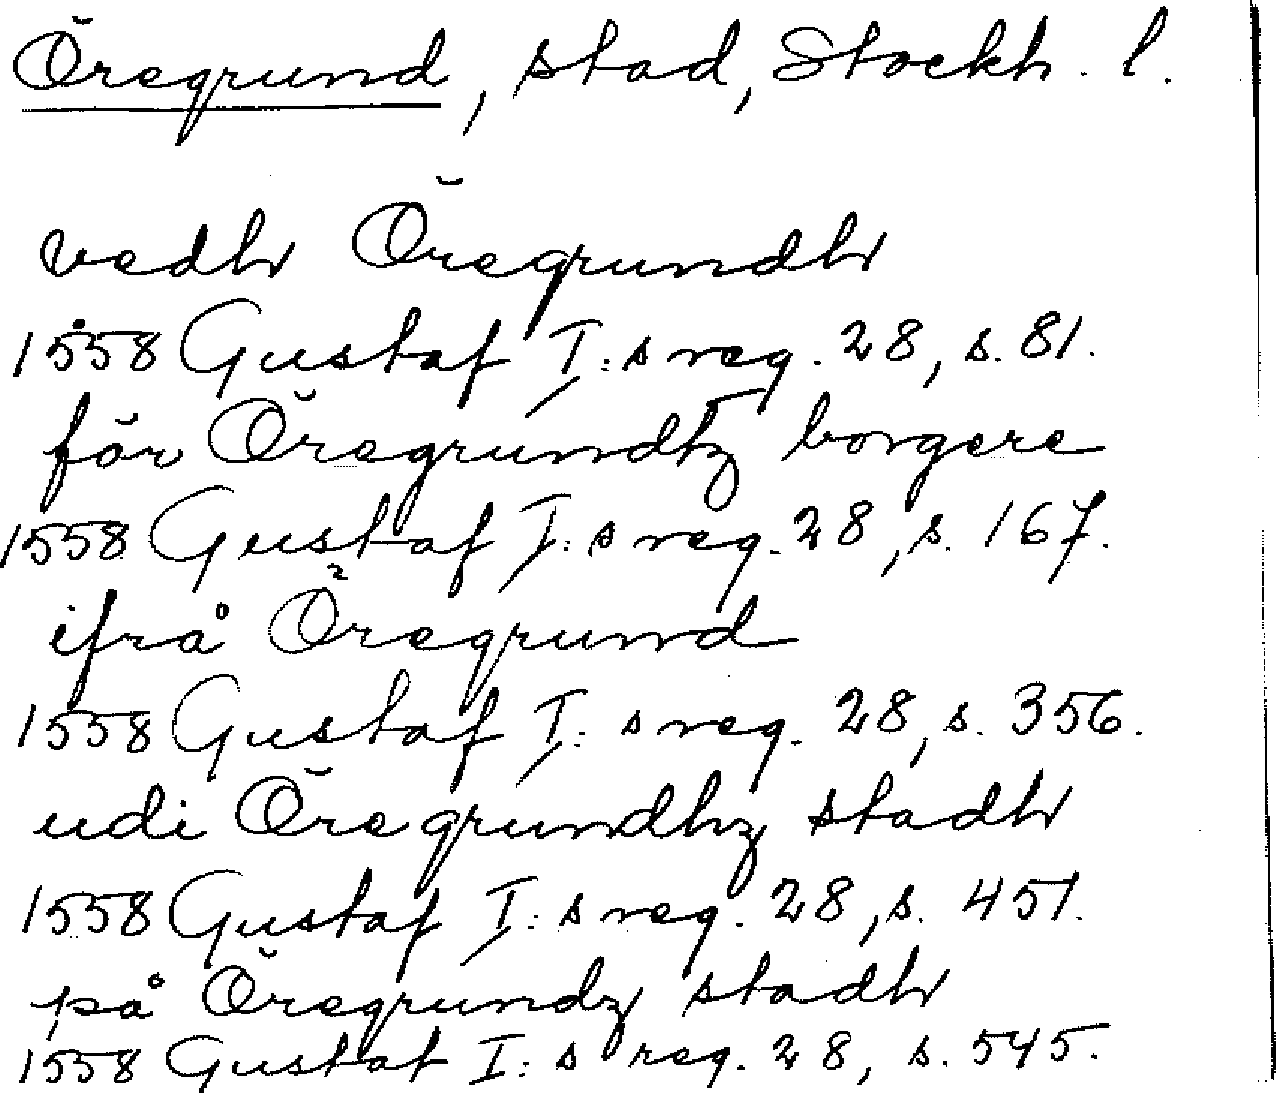 Öregrund, stad, Stockh. l.
vedh Öregrundh
1558 Gustaf I:s reg. 28, s. 81.
för Öregrundhz borgere
1558 Gustaf I:s reg. 28, s. 167.
ifrå Öregrund
1558 Gustaf I:s reg. 28, s. 356.
udi Öregrundhz stadh
1558 Gustaf I:s reg. 28, s. 451.
på Öregrundz stadh
1558 Gustaf I:s reg. 28, s. 545.